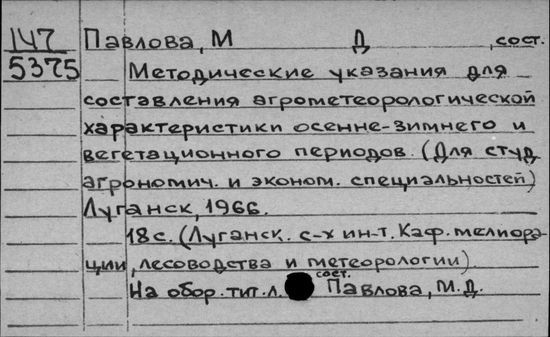 147 Павлова, М Д , сост.
5375 Методические указания для
составления агрометеорологической
характеристики осенне-зимнего и
вегетационного периодов. (Для студ
агрономич. и эконом. специальностей)
Луганск, 1966.
18 с. (Луганск. с-х ин-т. Каф. мелиора-
ции, лесоводства и метеорологии).
На обор. тит. л. сост. Павлова, М.Д.